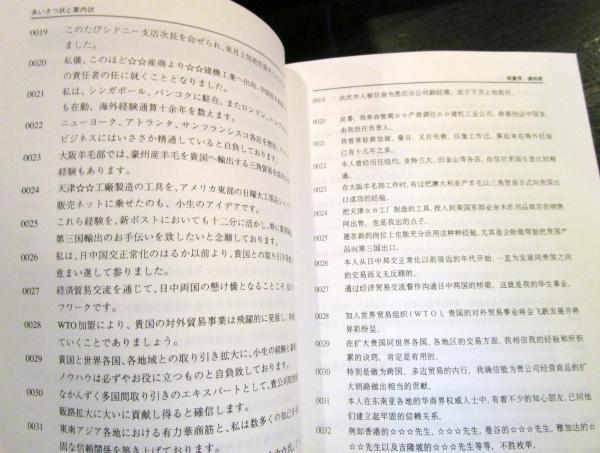 あいさつ状と案内状
0019 このたびシドニー支店次長を命ぜられ、来月上旬赴任
ました。
0020 私儀、このほど☆☆産商より☆☆建機工業へ出向、
の責任者の任に就くこととなりました。
0021 私は、シンガポール、バンコクに駐在、またロンドン、
も在勤、海外経験通算十余年を数えます。
0022 ニューヨーク、アトランタ、サンフランシスコ各店を
ビジネスにはいささか精通していると自負しております。
0023 大阪羊毛部では、豪州産羊毛を貴国へ輸出する三角貿易を
経験もあります。
0024 天津☆☆工廠製造の工具を、アメリカ東部の日曜大工用品
販売ネットに乗せたのも、小生のアイデアです。
0025 これら経験を、新ポストにおいても十二分に活かし、特に
第三国輸出のお手伝いを致したいと念願しております。
0026 私は、日中国交正常化のはるか以前より、貴国との取り引き
意まい進して参りました。
0027 経済貿易交流を通じて、日中両国の懸け橋となることこそ、
フワークです。
0028 WTO加盟により、貴国の対外貿易事業は飛躍的に発展し、
ていくことでありましょう。
0029 貴国と世界各国、各地域との取り引き拡大に、小生の経験と
ノウハウは必ずやお役に立つものと自負致しております。
0030 なかんずく多国間取り引きのエキスパートとして、貴公司
販路拡大に大いに貢献し得ると確信します。
0031 東南アジア各地における有力華商筋と、私は数多くの知己を
固な信頼関係を築き上げております。
0019 此次本人被任命为悉尼分公司副经理，定于下月上旬赴任。
0020 此番，我奉命暂离☆☆产商调往☆☆建机工业公司，将要创设中国室，
由我担任负责人。
0021 我曾常驻新加坡、曼谷，又在伦敦、汉堡工作过，算起来在海外经验
已有十几年之多。
0022 本人曾经历任纽约、亚特兰大、旧金山等各店，自信对美国生意比较精
通。
0023 在大阪羊毛部工作时，有过把澳大利亚产羊毛以三角贸易方式向贵国出
口成功的经验。
0024 把天津☆☆工厂制造的工具，投入到美国东部业余木匠用品商店的销售
网出售，也是我出的点子。
0025 愿在新的岗位上也能充分活用这种种经验，尤其是企盼能帮助把贵国产
品向第三国出口。
0026 本人从日中邦交正常化以前很远的年代开始，一直为发展同贵国之间
的交易而义无反顾的。
0027 通过经济贸易交流誓作沟通日中两国的桥梁，这就是我的毕生事业。
0028 加入世界贸易组织（WTO），贵国的对外贸易事业将会飞跃发展并将
异彩纷呈。
0029 在扩大贵国同世界各国、各地区的交易方面，我相信我的经验和所积
累的诀窍，肯定是有用的。
0030 特别是做为跨国、多边贸易的内行，我确信能为贵公司经营商品的扩
大销路做出相当的贡献。
0031 本人在东南亚各地的华商界权威人士中，有着不少的知心朋友，已同他
们建立起牢固的信赖关系。
0032 例如香港的☆☆☆先生、☆☆☆先生，曼谷的☆☆☆先生，雅加达的☆
☆☆先生以及吉隆坡的☆☆☆先生等等，不胜枚举。